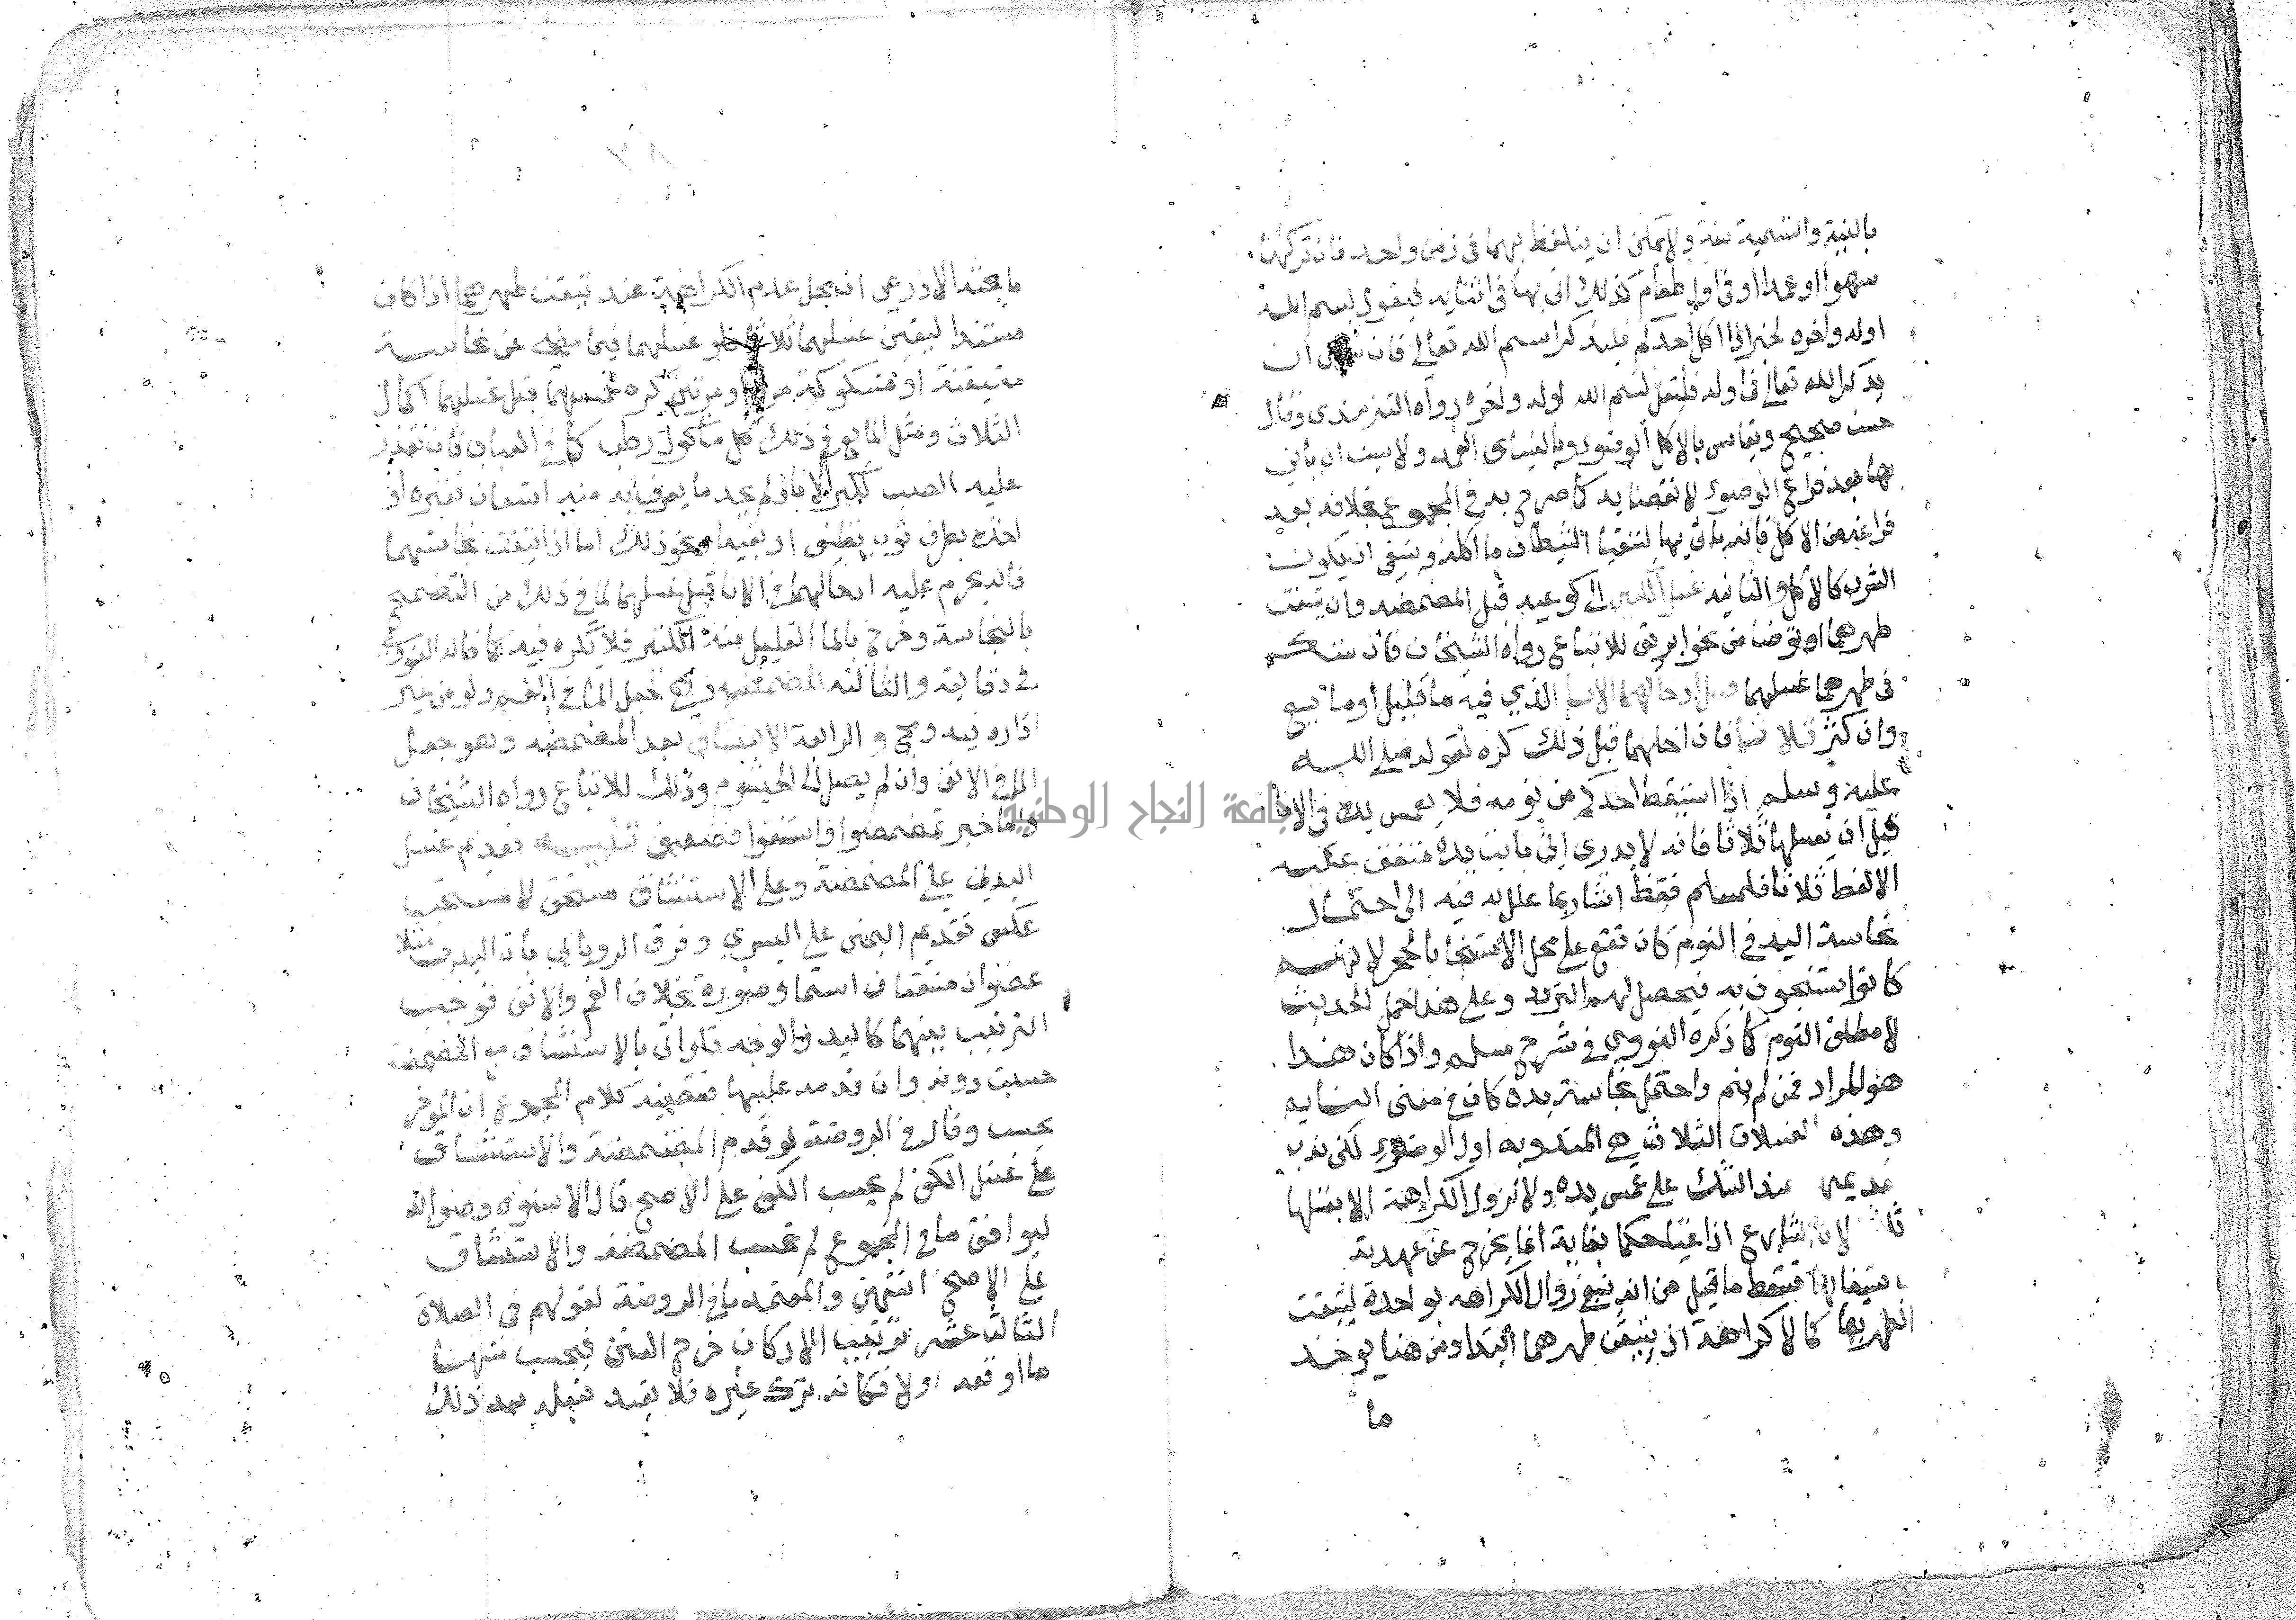 بالنية والتسمية سنة ولا يمكن ان يتلفظ بهما في زمن واحد فان تركها
سهوا او عمدا او في اول طعام كذلك اتى بها في اثنايه فيقول بسم الله
اوله واخره لخبر اذا اكل احدكم فليذكر اسم الله تعالى فان نسي ان
يذكر الله تعالى في اوله فليقل بسم الله اوله واخره رواه الترمذي وقال
حسن صحيح ويقاس بالاكل الوضوء وبالنسيان العمد ولا يسن ان ياتي
بها بعد فراغ الوضوء لانقضايه كما صرح به في المجموع بخلافه بعد
فراغه من الاكل فانه ياتي بها ليتقيا الشيطان ما اكله وينبغي ان يكون
الشرب كالاكل والثانيه غسل الكفين الى كوعيه قبل المضمضه وان تيقنت
طهرهما او توضا من نحو ابريق للاتباع رواه الشيخان فان شك
في طهرهما غسلهما قبل ادخالهما الانا الذي فيه ما قليل او مايع
وان كثر ثلاثا فان ادخلهما قبل ذلك كره لقوله صلى الله
عليه وسلم اذا استيقظ احدكم من نومه فلا يغمس يده في الانا
قبل ان يغسلها ثلاثا فانه لا يدري اين باتت يده متفق عليه
الا لفظ ثلاثا فلمسلم فقط اشار بما علل به فيه الى احتمال
نجاسة اليد في النوم كان تقع على محل الاستنجا بالحجر لانهم
كانوا يستنجون به فيحصل لهم التردد وعلى هذا حمل الحديث
لا مطلق النوم كما ذكره النووي في شرح مسلم واذا كان هذا
هو المراد فمن لم ينم واحتمل نجاسة يده كان في معنى النايم
وهذه الغسلات الثلاث هي المندوبه اول الوضوء لكن ندب
تقديمها عند الشك على غمس يده ولا تزول الكراهة الا بغسلها
ثلاثا لان الشارع اذا غيا حكما بغاية انما يخرج عن عهدته
باستيفائها فسقط ما قيل من انه ينبغي زوال الكراهه بواحدة لتيقن
الطهر بها كما لا كراهة اذا تيقن طهرهما ابتدا ومن هنا يوخذ
ما
ما بحثه الاذرعي ان محل عدم الكراهة عند تيقن طهرهما اذا كان
مستندا ليقين غسلهما ثلاثا فلو غسلهما فيما مضى عن نجاسة
متيقنة او مشكوكة مرة او مرتين كره غمسهما قبل غسلهما اكمال
الثلاث ومثل المايع في ذلك كل ماكول رطب كما في العباب فان تعذر
عليه الصب لكبر الانا ولم يجد ما يغرف به منه استعان بغيره او
اخذه بطرف ثوب نظيف او بفيه او نحو ذلك اما اذا تيقنت نجاستهما
فانه يحرم عليه ادخالهما في الانا قبل غسلهما لما في ذلك من التضمخ
بالنجاسة وخرج بالما القليل منه الكثير فلا يكره فيه كما قاله النووي
في دقايقه والثالثه المضمضه وهي جعل الما في الفم ولو من غير
اداره فيه ومج والرابعة الاستنشاق بعد المضمضه وهو جعل
الما في الانف وان لم يصل الى الخيشوم وذلك للاتباع رواه الشيخان
واما خبر تمضمضوا واستنشقوا فضعيف تنبيه تقديم غسل
اليدين على المضمضة وعلى الاستنشاق مستحق لا مستحب
عكس تقديم اليمنى على اليسرى وفرق الروياني بان اليدين مثلا
عضوان متفقان اسما وصورة بخلاف الفم والانف فوجب
الترتيب بينهما كاليد والوجه فلو اتى بالاستنشاق مع المضمضة
حسبت دونه وان قدمه عليها فقضية كلام المجموع ان الموخر
يحسب وقال في الروضة لو قدم المضمضة والاستنشاق
على غسل الكف لم يحسب الكف على الاصح قال الاسنوي وصوابه
ليوافق ما في المجموع لم تحسب المضمضة والاستنشاق
على الاصح انتهى والمعتمد ما في الروضة لقولهم في الصلاة
الثالث عشر ترتيب الاركان خرج السنن فيحسب منها
ما اوقعه اولا فكانه ترك غيره فلا يعتد بفعله بعد ذلك
جامعة النجاح الوطنية